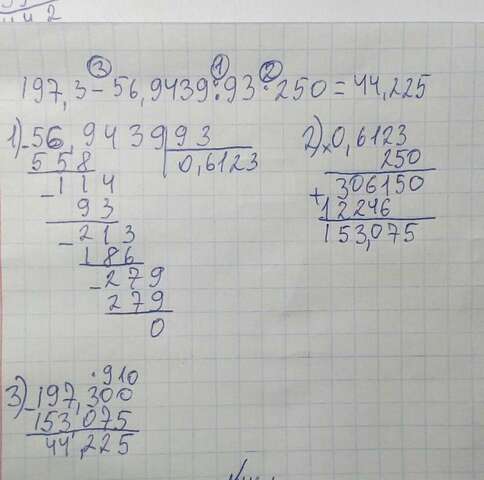 197,3-56,9439:93·250=44,225
1) 56,9439 | 93
558 | 0,6123
-114
93
-213
186
-279
279
0
2) ×0,6123
250
+306150
12246
153,075
·910
3) -197,300
153,075
44,225